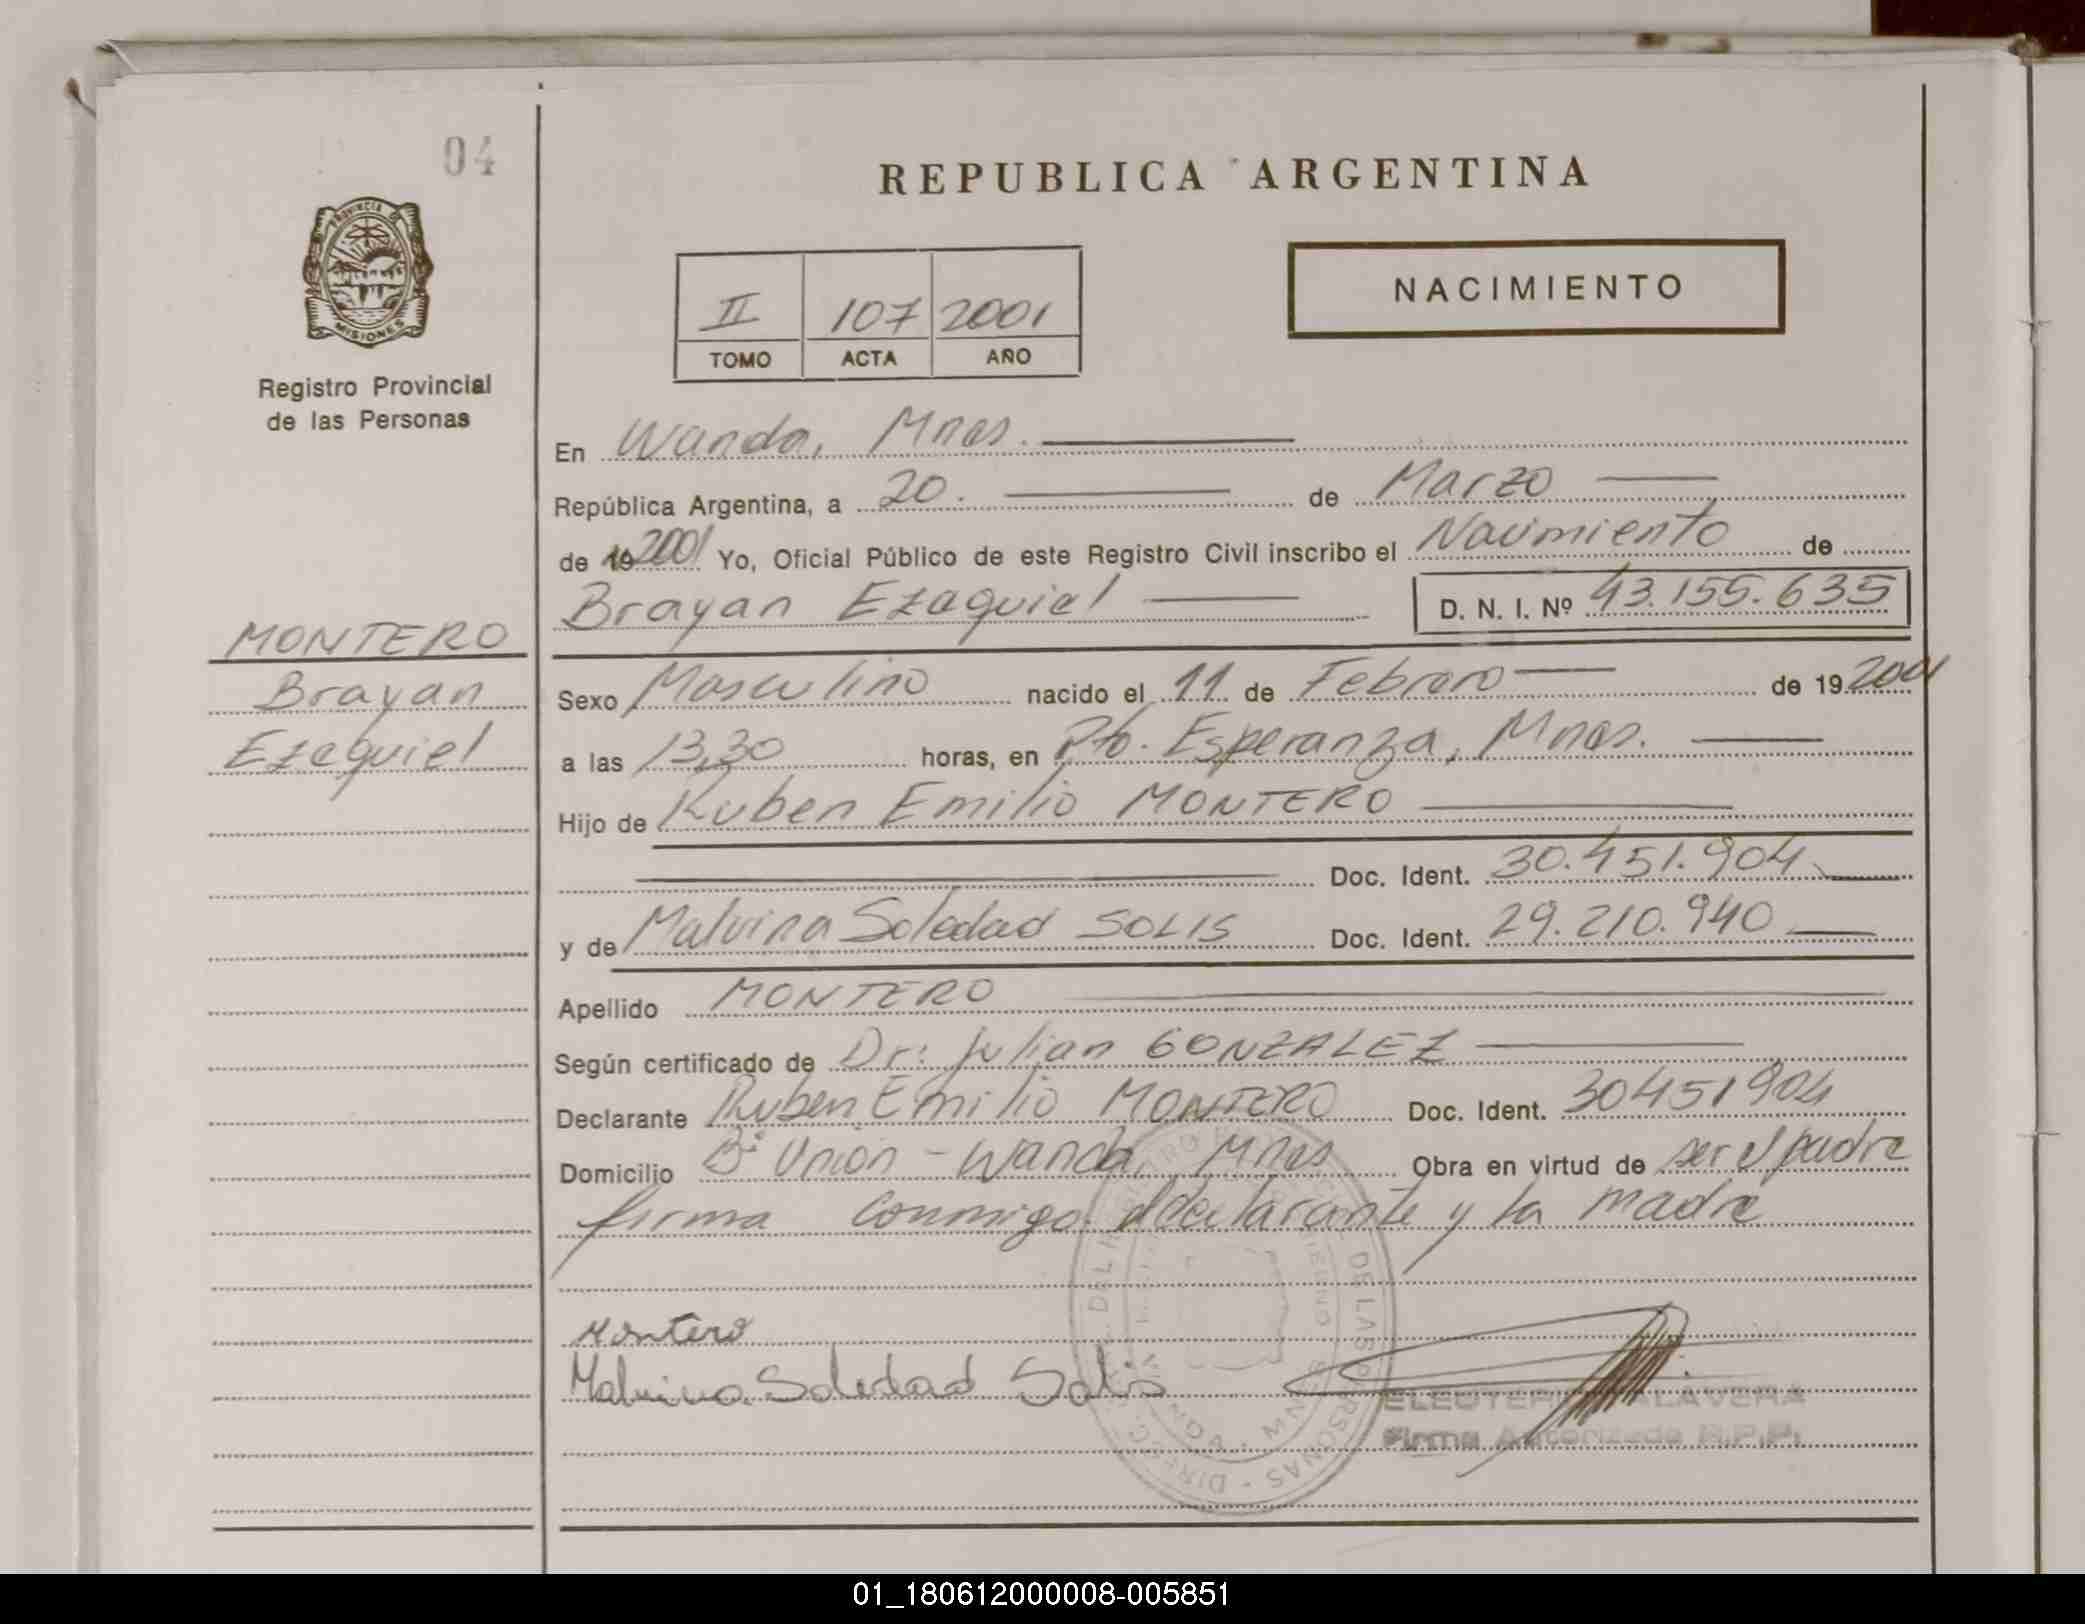 04
PROVINCIA DE
MISIONES
Registro Provincial
de las Personas
MONTERO
Brayan
Ezequiel
REPUBLICA ARGENTINA
II 107 2001
TOMO ACTA AÑO
NACIMIENTO
En Wanda, Mnes.
República Argentina, a 20. de Marzo
de 19 2001 Yo, Oficial Público de este Registro Civil inscribo el Nacimiento de
Brayan Ezequiel D. N. I. Nº 43.155.635
Sexo Masculino nacido el 11 de Febrero de 19 2001
a las 13,30 horas, en Pto. Esperanza, Mnes.
Hijo de Ruben Emilio MONTERO
Doc. Ident. 30.451.904
y de Malvina Soledad SOLIS Doc. Ident. 29.210.940
Apellido MONTERO
Según certificado de Dr: Julian GONZALEZ
Declarante Ruben Emilio MONTERO Doc. Ident. 30451904
Domicilio Bº Unión - Wanda, Mnes Obra en virtud de ser el padre
firma conmigo declarante y la madre
Montero
Malvina Soledad Solis
ELEUTERIO TALAVERA
Firma Autorizada R.P.P.
01_180612000008-005851